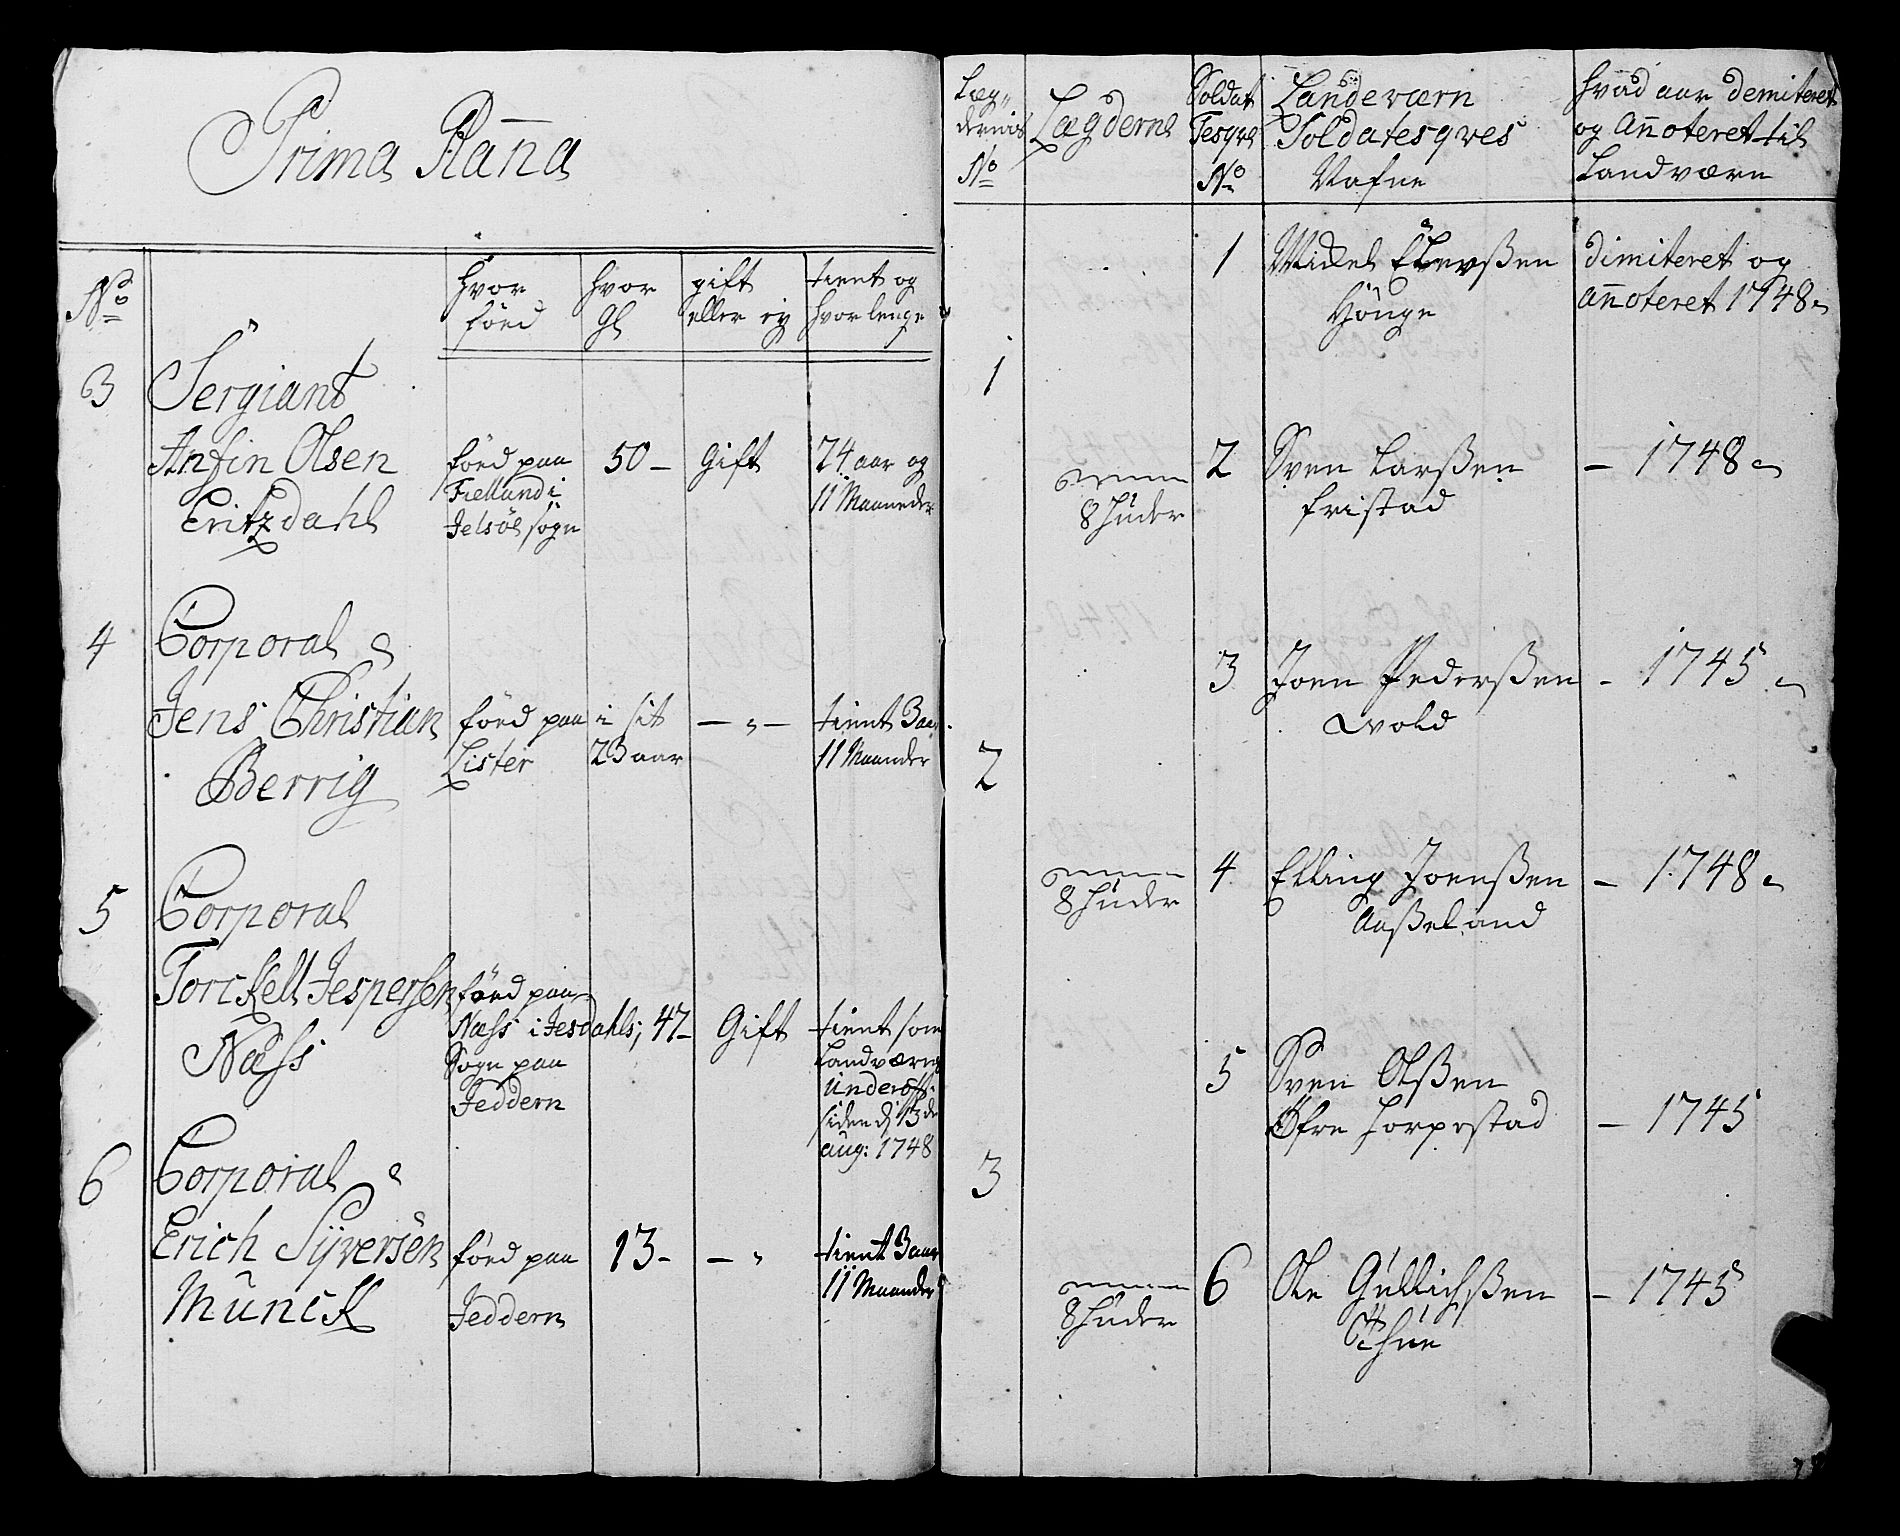 Prima Plana
No
Hvor
föed
hvor
gl
gift
eller ey
tient og
hvor lenge
3
Sergiant
Anfin Olsen
Eritzdahl
föed paa
Fiellund i
Jelsöe sogn
50 –
Gift
24 aar og
11 Maaneder
4
Corporal
Jens Christian
Berrig
föed paa
Lister
i sit
23 aar
– „ –
tient 3 aar
11 Maander
5
Corporal
Torckell Jespersen
Næss
föed paa
Næss i Jesdahls;
Sogn paa
Jeddern
47 –
Gift
tient som
Landværns
Underoff:
siden d 13 de
aug: 1748
6
Corporal
Erich Syversen
Munck
föed paa
Jeddern
13 –
– „
tient 3 aar
11 Maander
Læg„
dernis
No
Lægderne
Soldat
Tesqves
No
Landeværn
Soldatesqves
Nafne
hvad aar demiteret
og Annoteret til
Landværn
1
1
Hönge
dimiteret og
annoteret 1748
8 Huder
2
Sven Larssen
fristad
– 1748
2
3
Joen Pederssen
Wold
– 1745
8 Huder
4
Elling Joenssen
Aasseland
– 1748
3
5
Sven Olssen
Öfre Horpestad
– 1745
8 Huder
6
Ole Gullichssen
Thue
– 1745